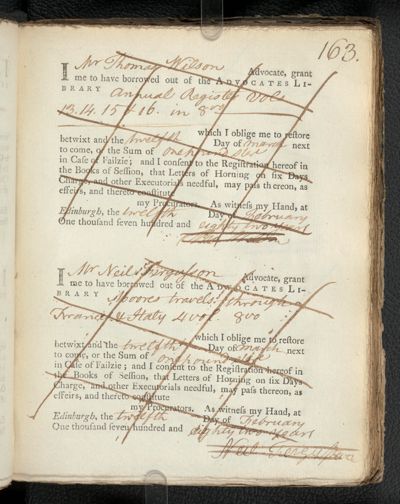 163.
I Mr Thomas Wilson Advocate, grant
me to have borrowed out of the ADVOCATES LI-
BRARY Annual Register Vols
13. 14. 15 & 16. in 8vo
which I oblige me to reſtore
betwixt and the twelfth Day of March next
to come, or the Sum of one pound ster
in Caſe of Failzie; and I conſent to the Regiſtration hereof in
the Books of Seſſion, that Letters of Horning on ſix Days
Charge, and other Executorials needful, may paſs thereon, as
effeirs, and thereto conſtitute
my Procurators. As witneſs my Hand, at
Edinburgh, the twelfth Day of February
One thouſand ſeven hundred and eighty two years
I Mr Neil Fergusson Advocate, grant
me to have borrowed out of the ADVOCATES LI-
BRARY Moores travels through
France & Italy 4 vol. 8vo
which I oblige me to reſtore
betwixt and the twelfth Day of March next
to come, or the Sum of one pound ster
in Caſe of Failzie; and I conſent to the Regiſtration hereof in
the Books of Seſſion, that Letters of Horning on ſix Days
Charge, and other Executorials needful, may paſs thereon, as
effeirs, and thereto conſtitute
my Procurators. As witneſs my Hand, at
Edinburgh, the twelfth Day of February
One thouſand ſeven hundred and eighty two years
Neil Fergusson